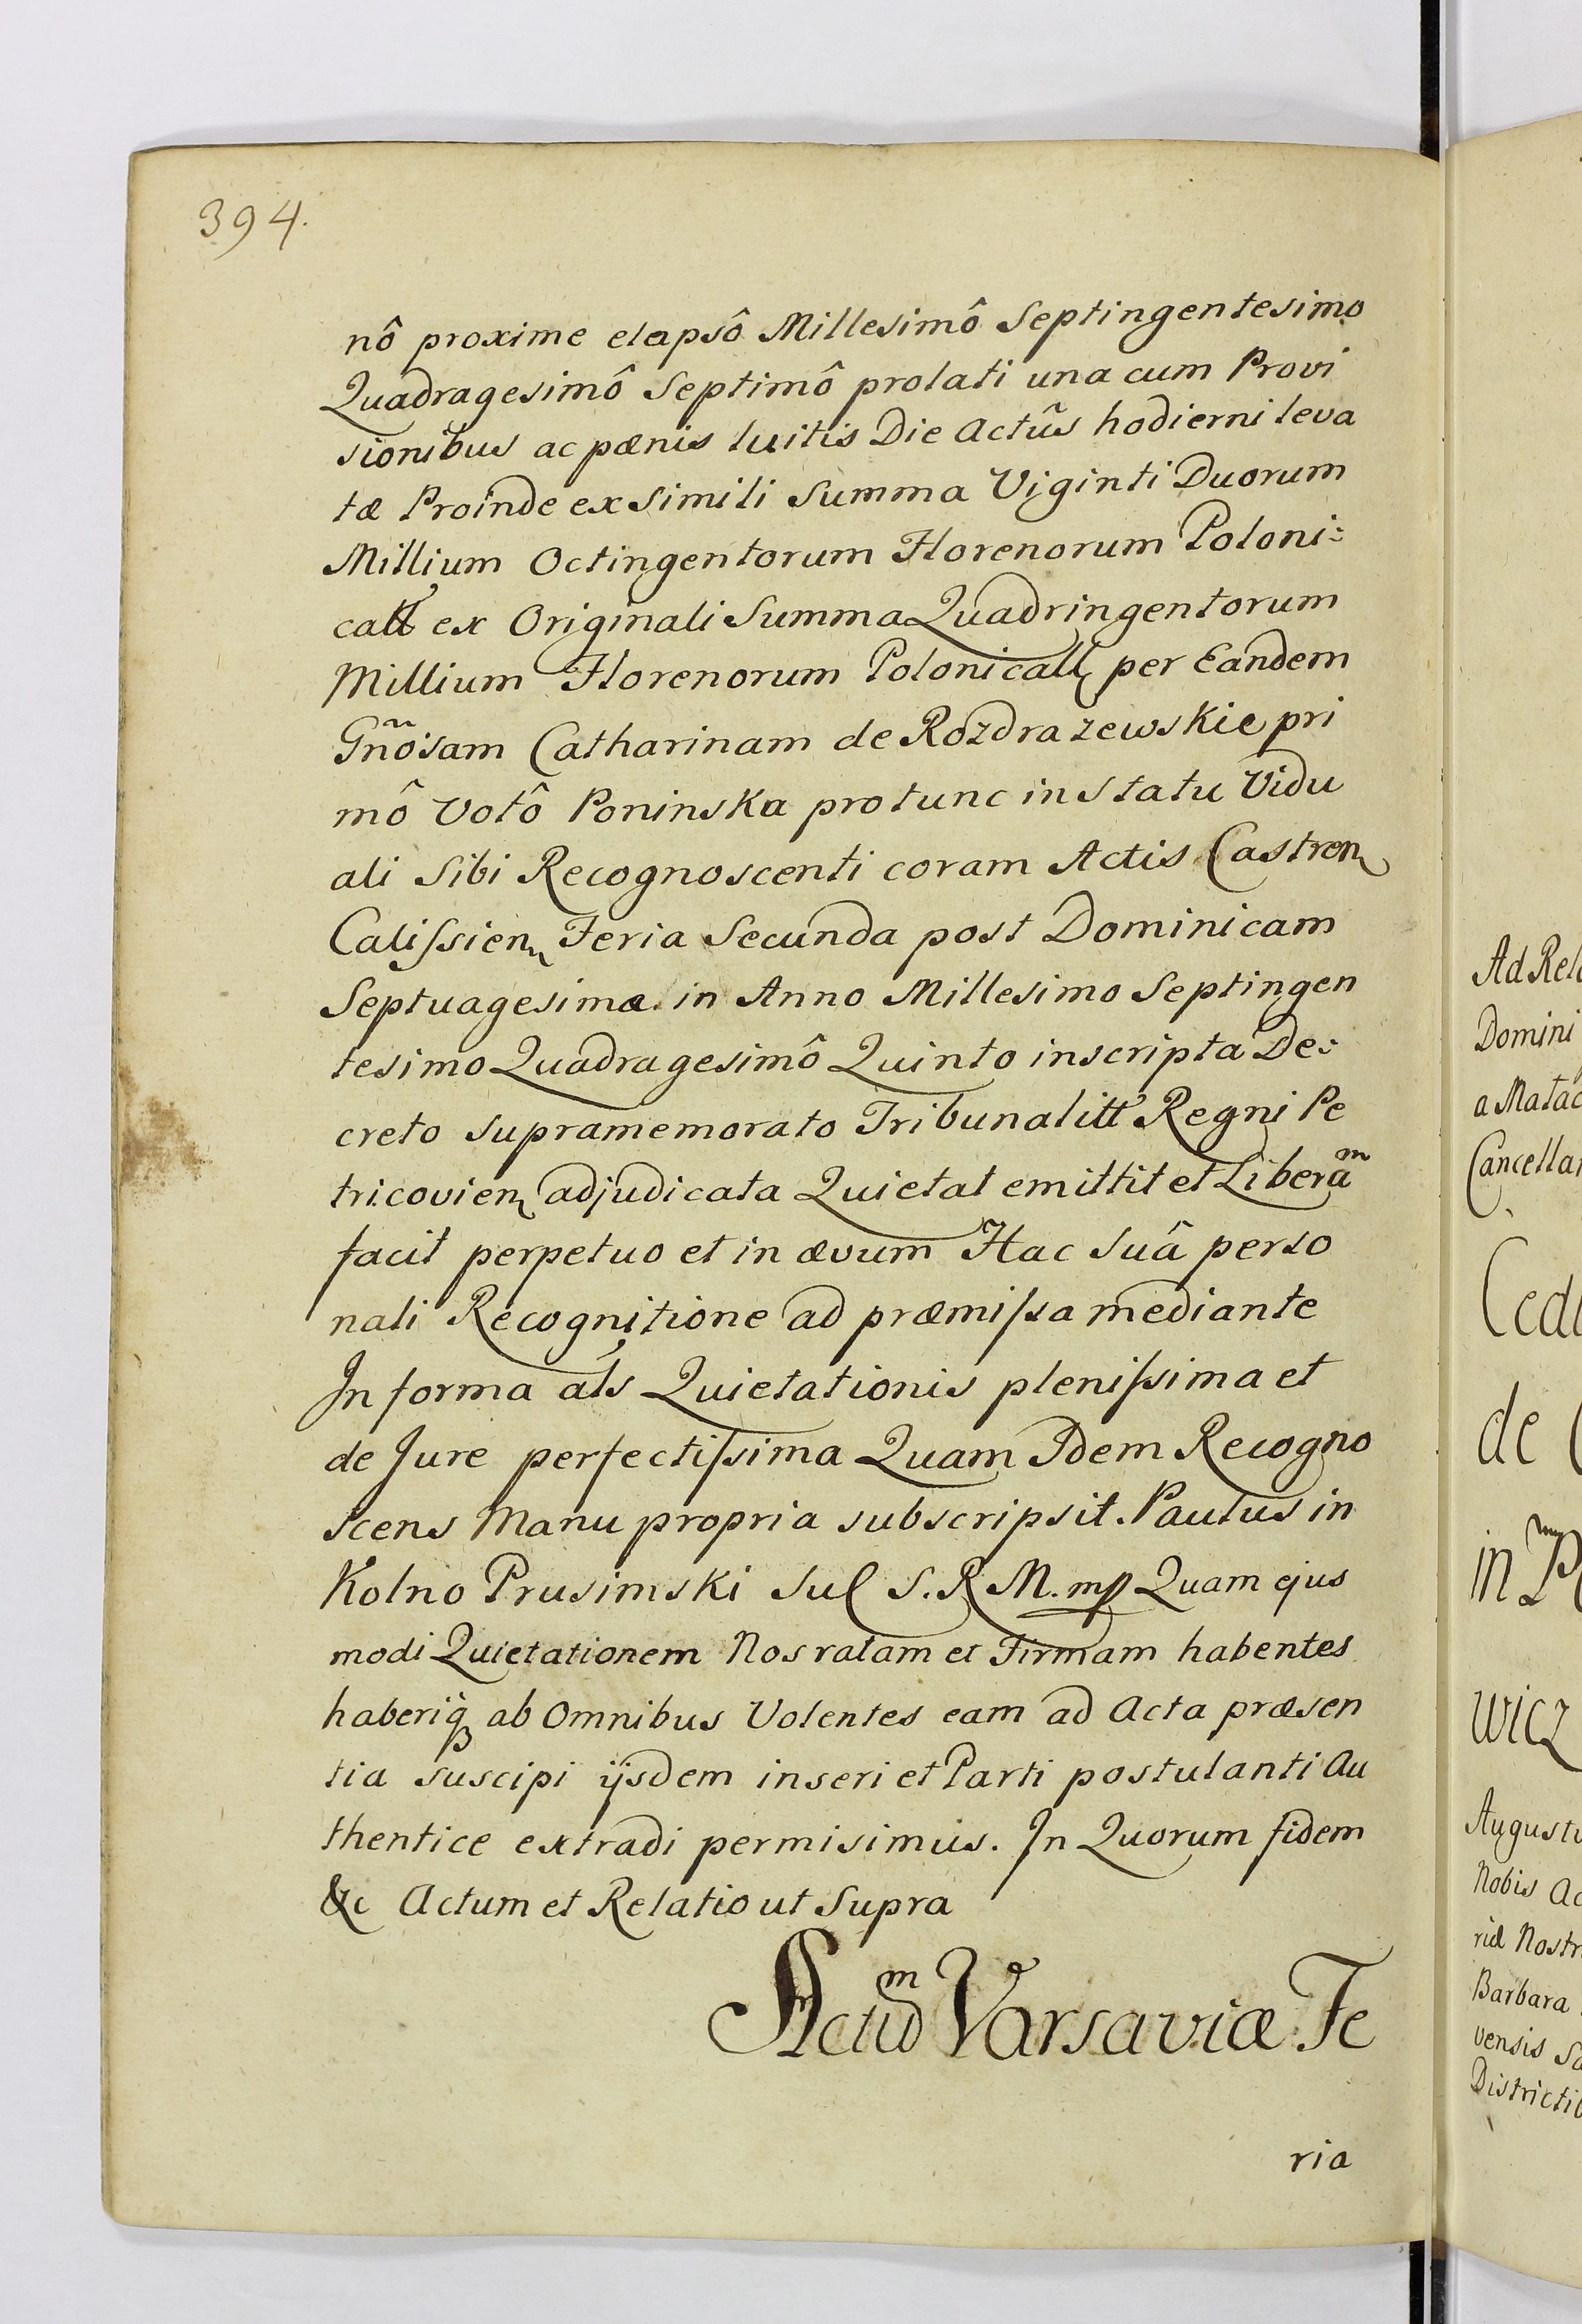 394.
nô proxime elapsô Millesimô Septingentesimo
Quadragesimô Septimô prolati una cum Provi
sionibus ac pænis luitis Die Actûs hodierni leva
tæ Proinde ex simili Summa Viginti Duorum
Millium Octingentorum Florenorum Poloni:
call ex Originali Summa Quadringentorum
Millium Florenorum Polonicall per Eandem
Gñosam Catharinam de Rozdrazewskie pri
mô Votô Poninska protunc in statu Vidu
ali Sibi Recognoscenti coram Actis Castren
Calissien Feria Secunda post Dominicam
Septuagesimæ in Anno Millesimo Septingen
tesimo Quadragesimô Quinto inscripta De:
creto supramemorato Tribunalitt Regni Pe
tricovien adjudicata Quietat emittit et Libera^m
facit perpetuo et in ævum Hac Suâ perso
nali Recognitione ad præmissa mediante
In forma als Quietationis plenissima et
de Jure perfectissima Quam Idem Recogno
scens Manu propria subscripsit. Paulus in
Kolno Prusimski Sul S. R. M. mp Quam ejus
modi Quietationem Nos ratam et Firmam habentes
haberiq₃ ab Omnibus Volentes eam ad Acta præsen
tia suscipi ijsdem inseri et Parti postulanti Au
thentice extradi permisimus. In Quorum fidem
&c Actum et Relatio ut Supra
Actu^m Varsaviæ Fe
ria
Ad Rel
Domini
a Matac
Cancella
Ced
de
in
wicz
August
Nobis Ac
Nostr
Barbara
vensis Sa
Districti